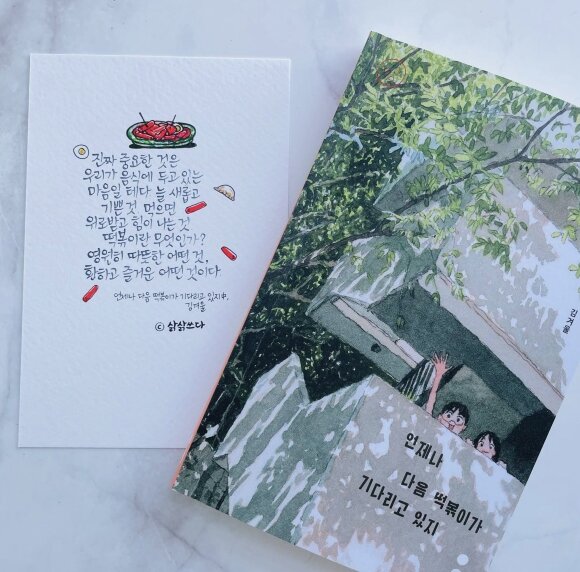 진짜 중요한 것은
우리가 음식에 두고 있는
마음일 테다. 늘 새롭고
기쁜 것. 먹으면
위로받고 힘이 나는 것.
떡볶이란 무엇인가?
영원히 따뜻한 어떤 것,
환하고 즐거운 어떤 것이다.
언제나 다음 떡볶이가 기다리고 있지 中,
김겨울
ⓒ 삵삵쓰다
김겨울
언제나
다음 떡볶이가
기다리고 있지